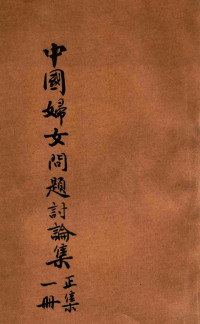 中國婦女問題討論集
正集
一冊